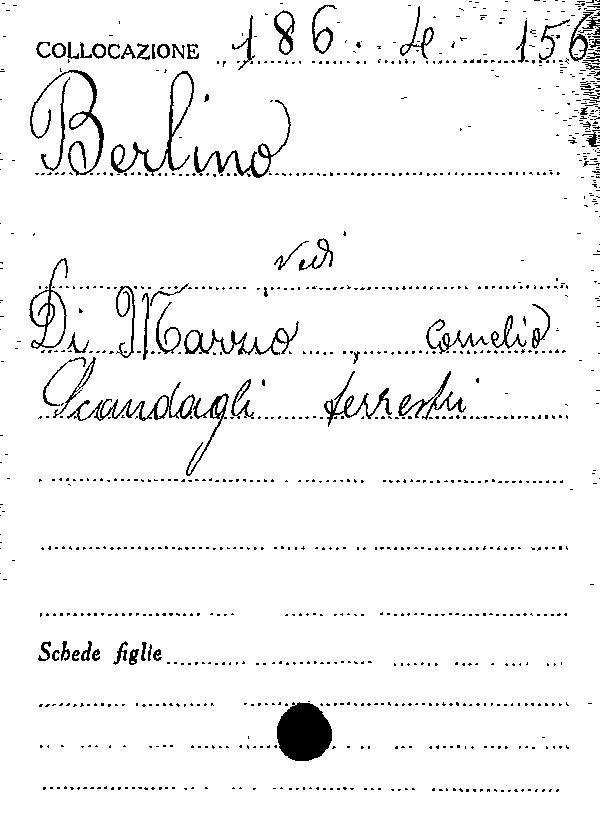 COLLOCAZIONE 186. 4. 156
Berlino
Vedi
Di Marzio Cornelio
Scandagli terrestri
Schede figlie